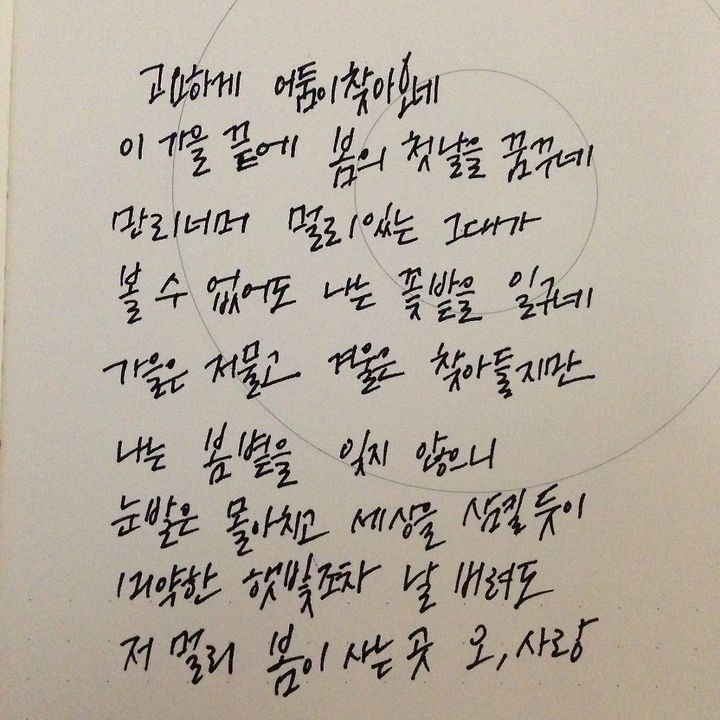 고요하게 어둠이찾아오네
이 가을 끝에 봄의 첫날을 꿈꾸네
만리너머 멀리있는 그대가
볼 수 없어도 나는 꽃밭을 일구네
가을은 저물고 겨울은 찾아들지만
나는 봄볕을 잊지 않으니
눈발은 몰아치고 세상을 삼킬듯이
미약한 햇빛조차 날 버려도
저 멀리 봄이 사는 곳 오, 사랑